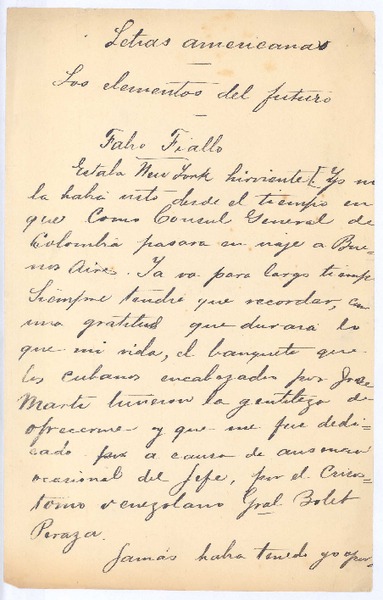 Letras americanas
Los elementos del futuro
Fabio Fiallo
Estaba New York hirviente [Yo no
la había visto desde el tiempo en
que como Consul General de
Colombia pasara en viaje a Bue-
nos Aires. Ya va para largo tiempo
Siempre tendré que recordar, con
una gratitud que durará lo
que mi vida, el banquete que
los cubanos encabezados por Jose
Martí tuvieron la gentileza de
ofrecerme y que me fue dedi-
cado a causa de ausencia
ocasional del Jefe, por el Crisos-
tomo venezolano Gral Bolet
Peraza.
Jamás había tenido yo opor-